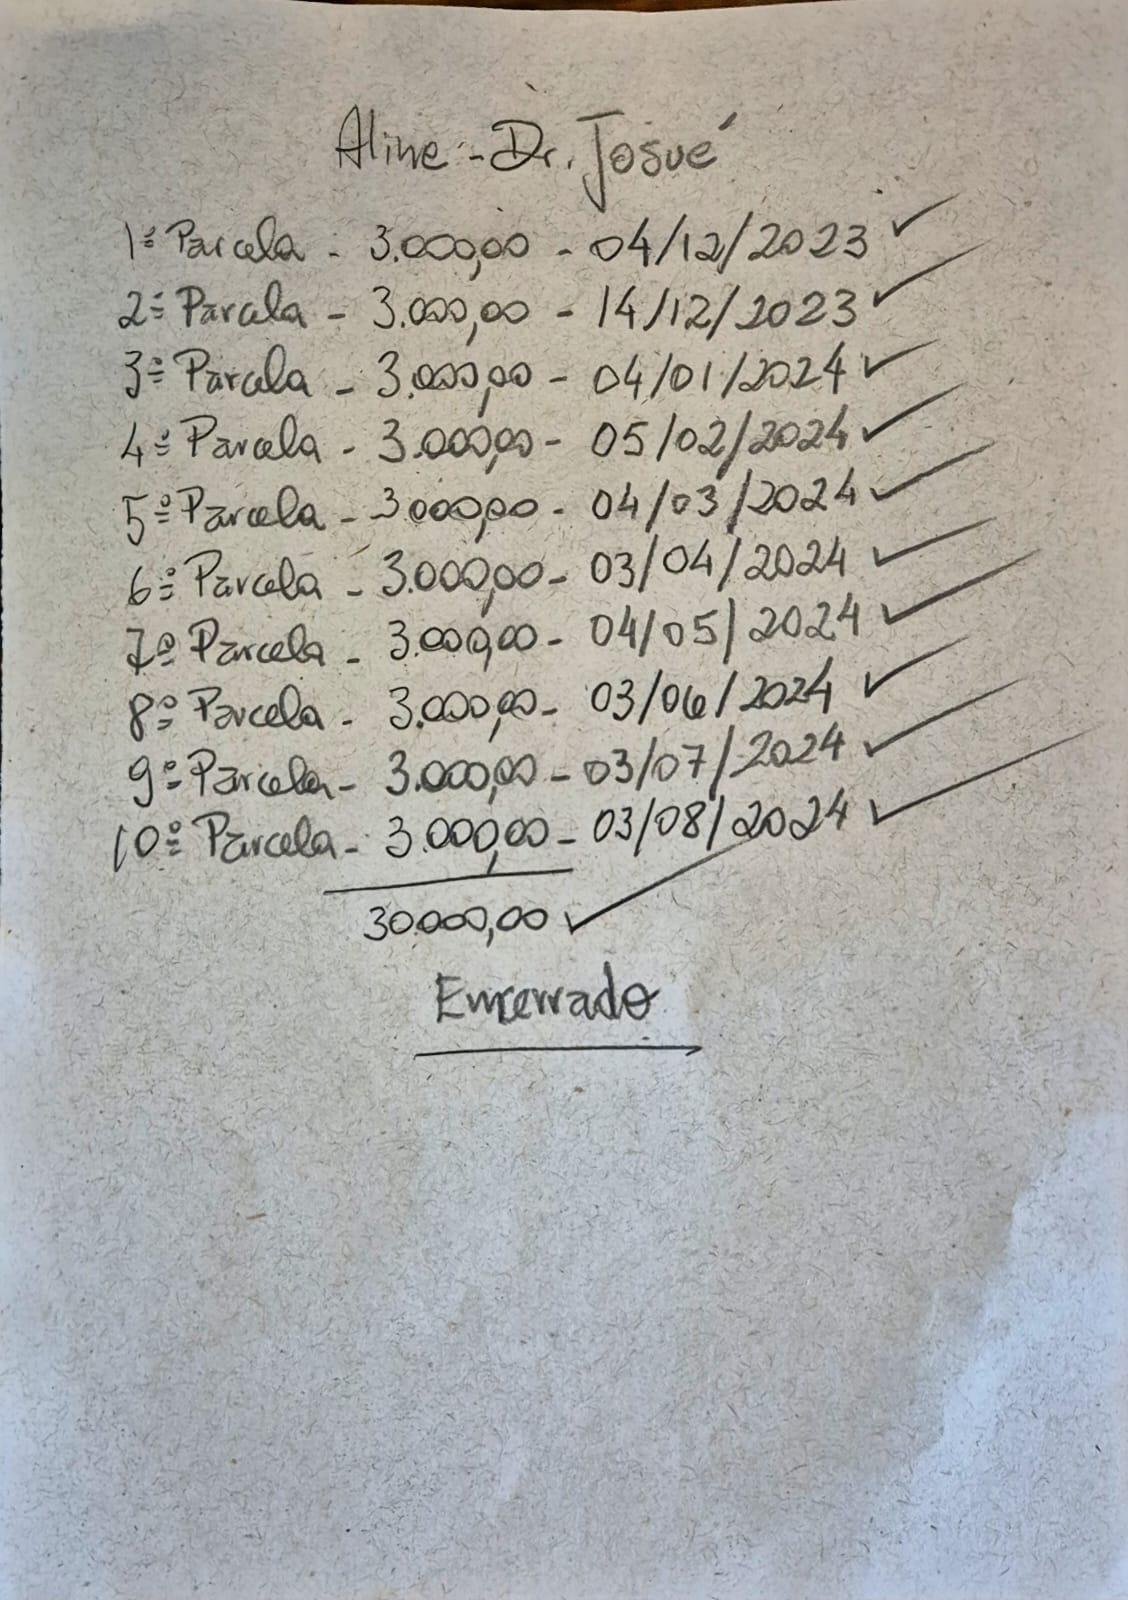 Aline - Dr. Josué
1ª Parcela - 3.000,00 - 04/12/2023 ✓
2ª Parcela - 3.000,00 - 14/12/2023 ✓
3ª Parcela - 3.000,00 - 04/01/2024 ✓
4ª Parcela - 3.000,00 - 05/02/2024 ✓
5ª Parcela - 3.000,00 - 04/03/2024 ✓
6ª Parcela - 3.000,00 - 03/04/2024 ✓
7ª Parcela - 3.000,00 - 04/05/2024 ✓
8ª Parcela - 3.000,00 - 03/06/2024 ✓
9ª Parcela - 3.000,00 - 03/07/2024 ✓
10ª Parcela - 3.000,00 - 03/08/2024 ✓
30.000,00 ✓
Encerrado